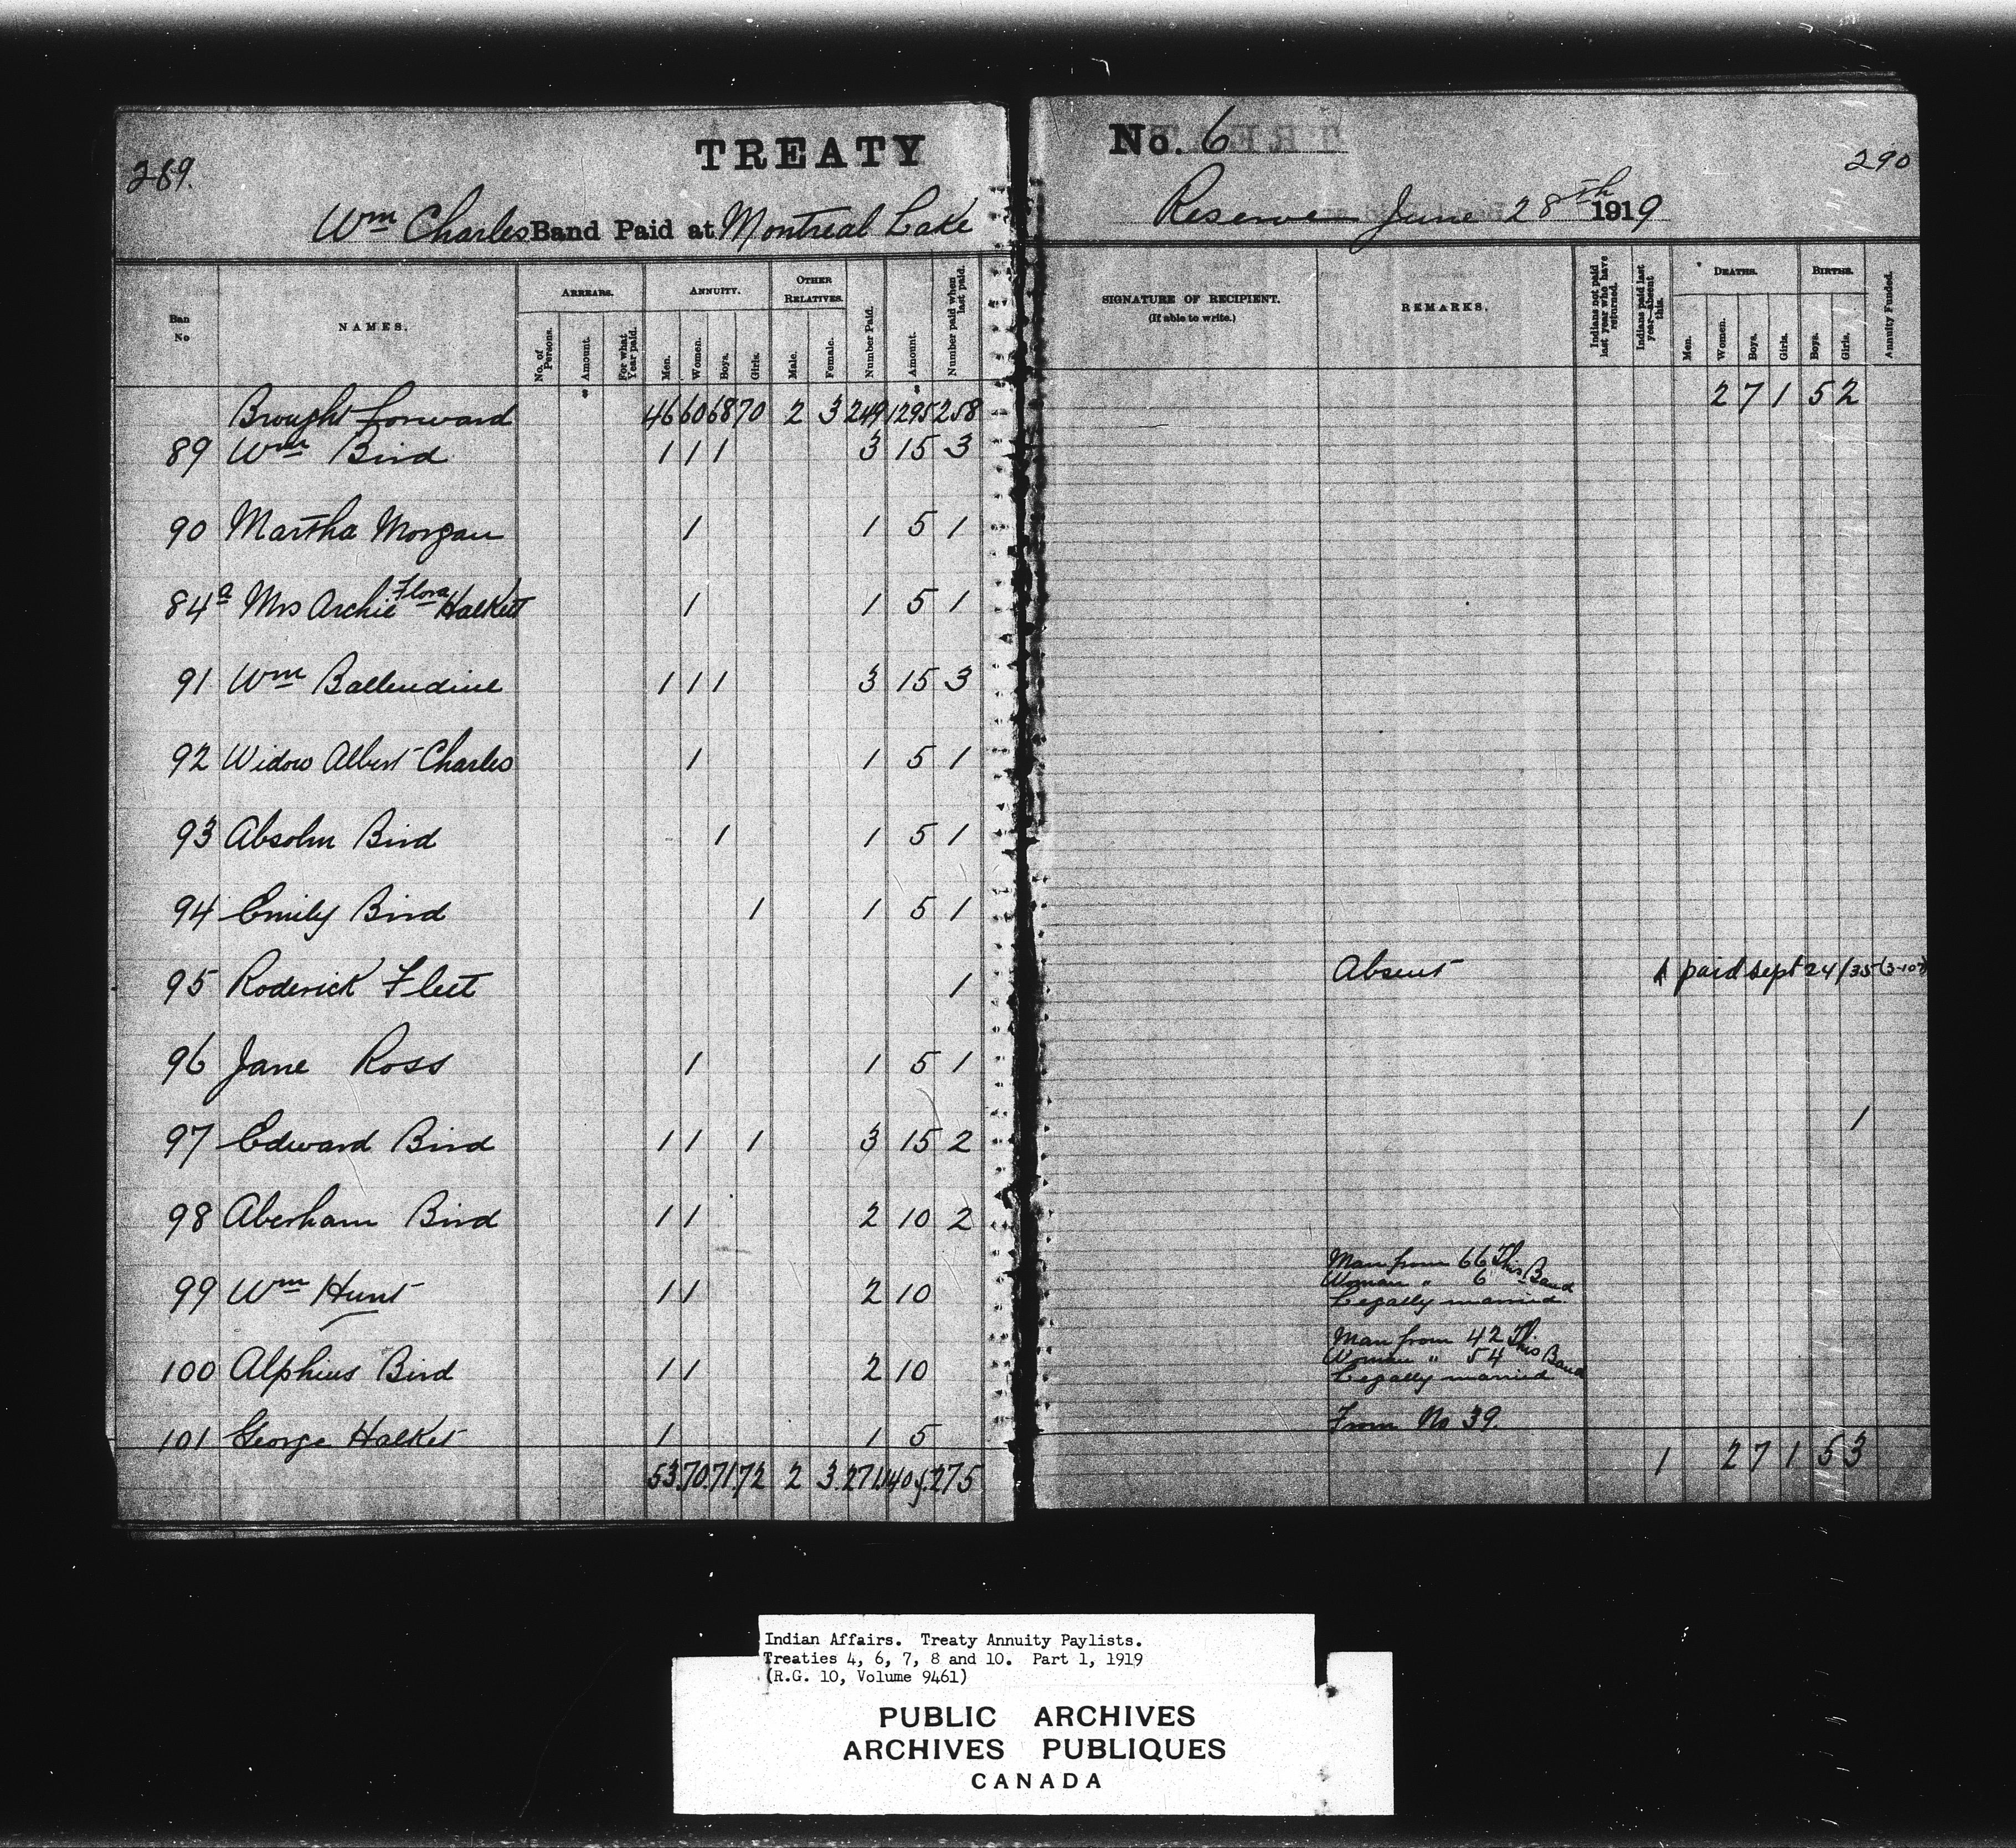 TREATY No. 6
289. 290
Wm Charles Band Paid at Montreal Lake Reserve June 28th 1919
Ban No
NAMES.
ARREARS.
No. of Persons.
Amount.
For what Year paid.
ANNUITY.
Men.
Women.
Boys.
Girls.
OTHER RELATIVES.
Male.
Female.
Number Paid.
Amount.
Number paid when last paid.
SIGNATURE OF RECIPIENT.
(If able to write.)
REMARKS.
Indians not paid last year who have returned.
Indians paid last year—absent this.
DEATHS.
Men.
Women.
Boys.
Girls.
BIRTHS.
Boys.
Girls.
Annuity Funded.
Brought forward 46 60 68 70 2 3 249 1295 258 2 7 1 5 2
89 Wm Bird 1 1 1 3 15 3
90 Martha Morgan 1 1 5 1
84a Mrs Archie Flora Halkett 1 1 5 1
91 Wm Ballendine 1 1 1 3 15 3
92 Widow Albert Charles 1 1 5 1
93 Absolm Bird 1 1 5 1
94 Emily Bird 1 1 5 1
95 Roderick Fleet 1 Absent 1 paid Sept 24/35
96 Jane Ross 1 1 5 1
97 Edward Bird 1 1 1 3 15 2 1
98 Aberham Bird 1 1 2 10 2
99 Wm Hunt 1 1 2 10
Man from 66 This Band
Woman " 6
Legally married.
100 Alphius Bird 1 1 2 10
Man from 42 This Band
Woman " 54
Legally married
101 George Halket 1 1 5 From No 39.
53. 70. 71. 72 2 3. 271. 1405. 275 1 2 7 1 5 3
Indian Affairs. Treaty Annuity Paylists.
Treaties 4, 6, 7, 8 and 10. Part 1, 1919
(R.G. 10, Volume 9461)
PUBLIC ARCHIVES
ARCHIVES PUBLIQUES
CANADA